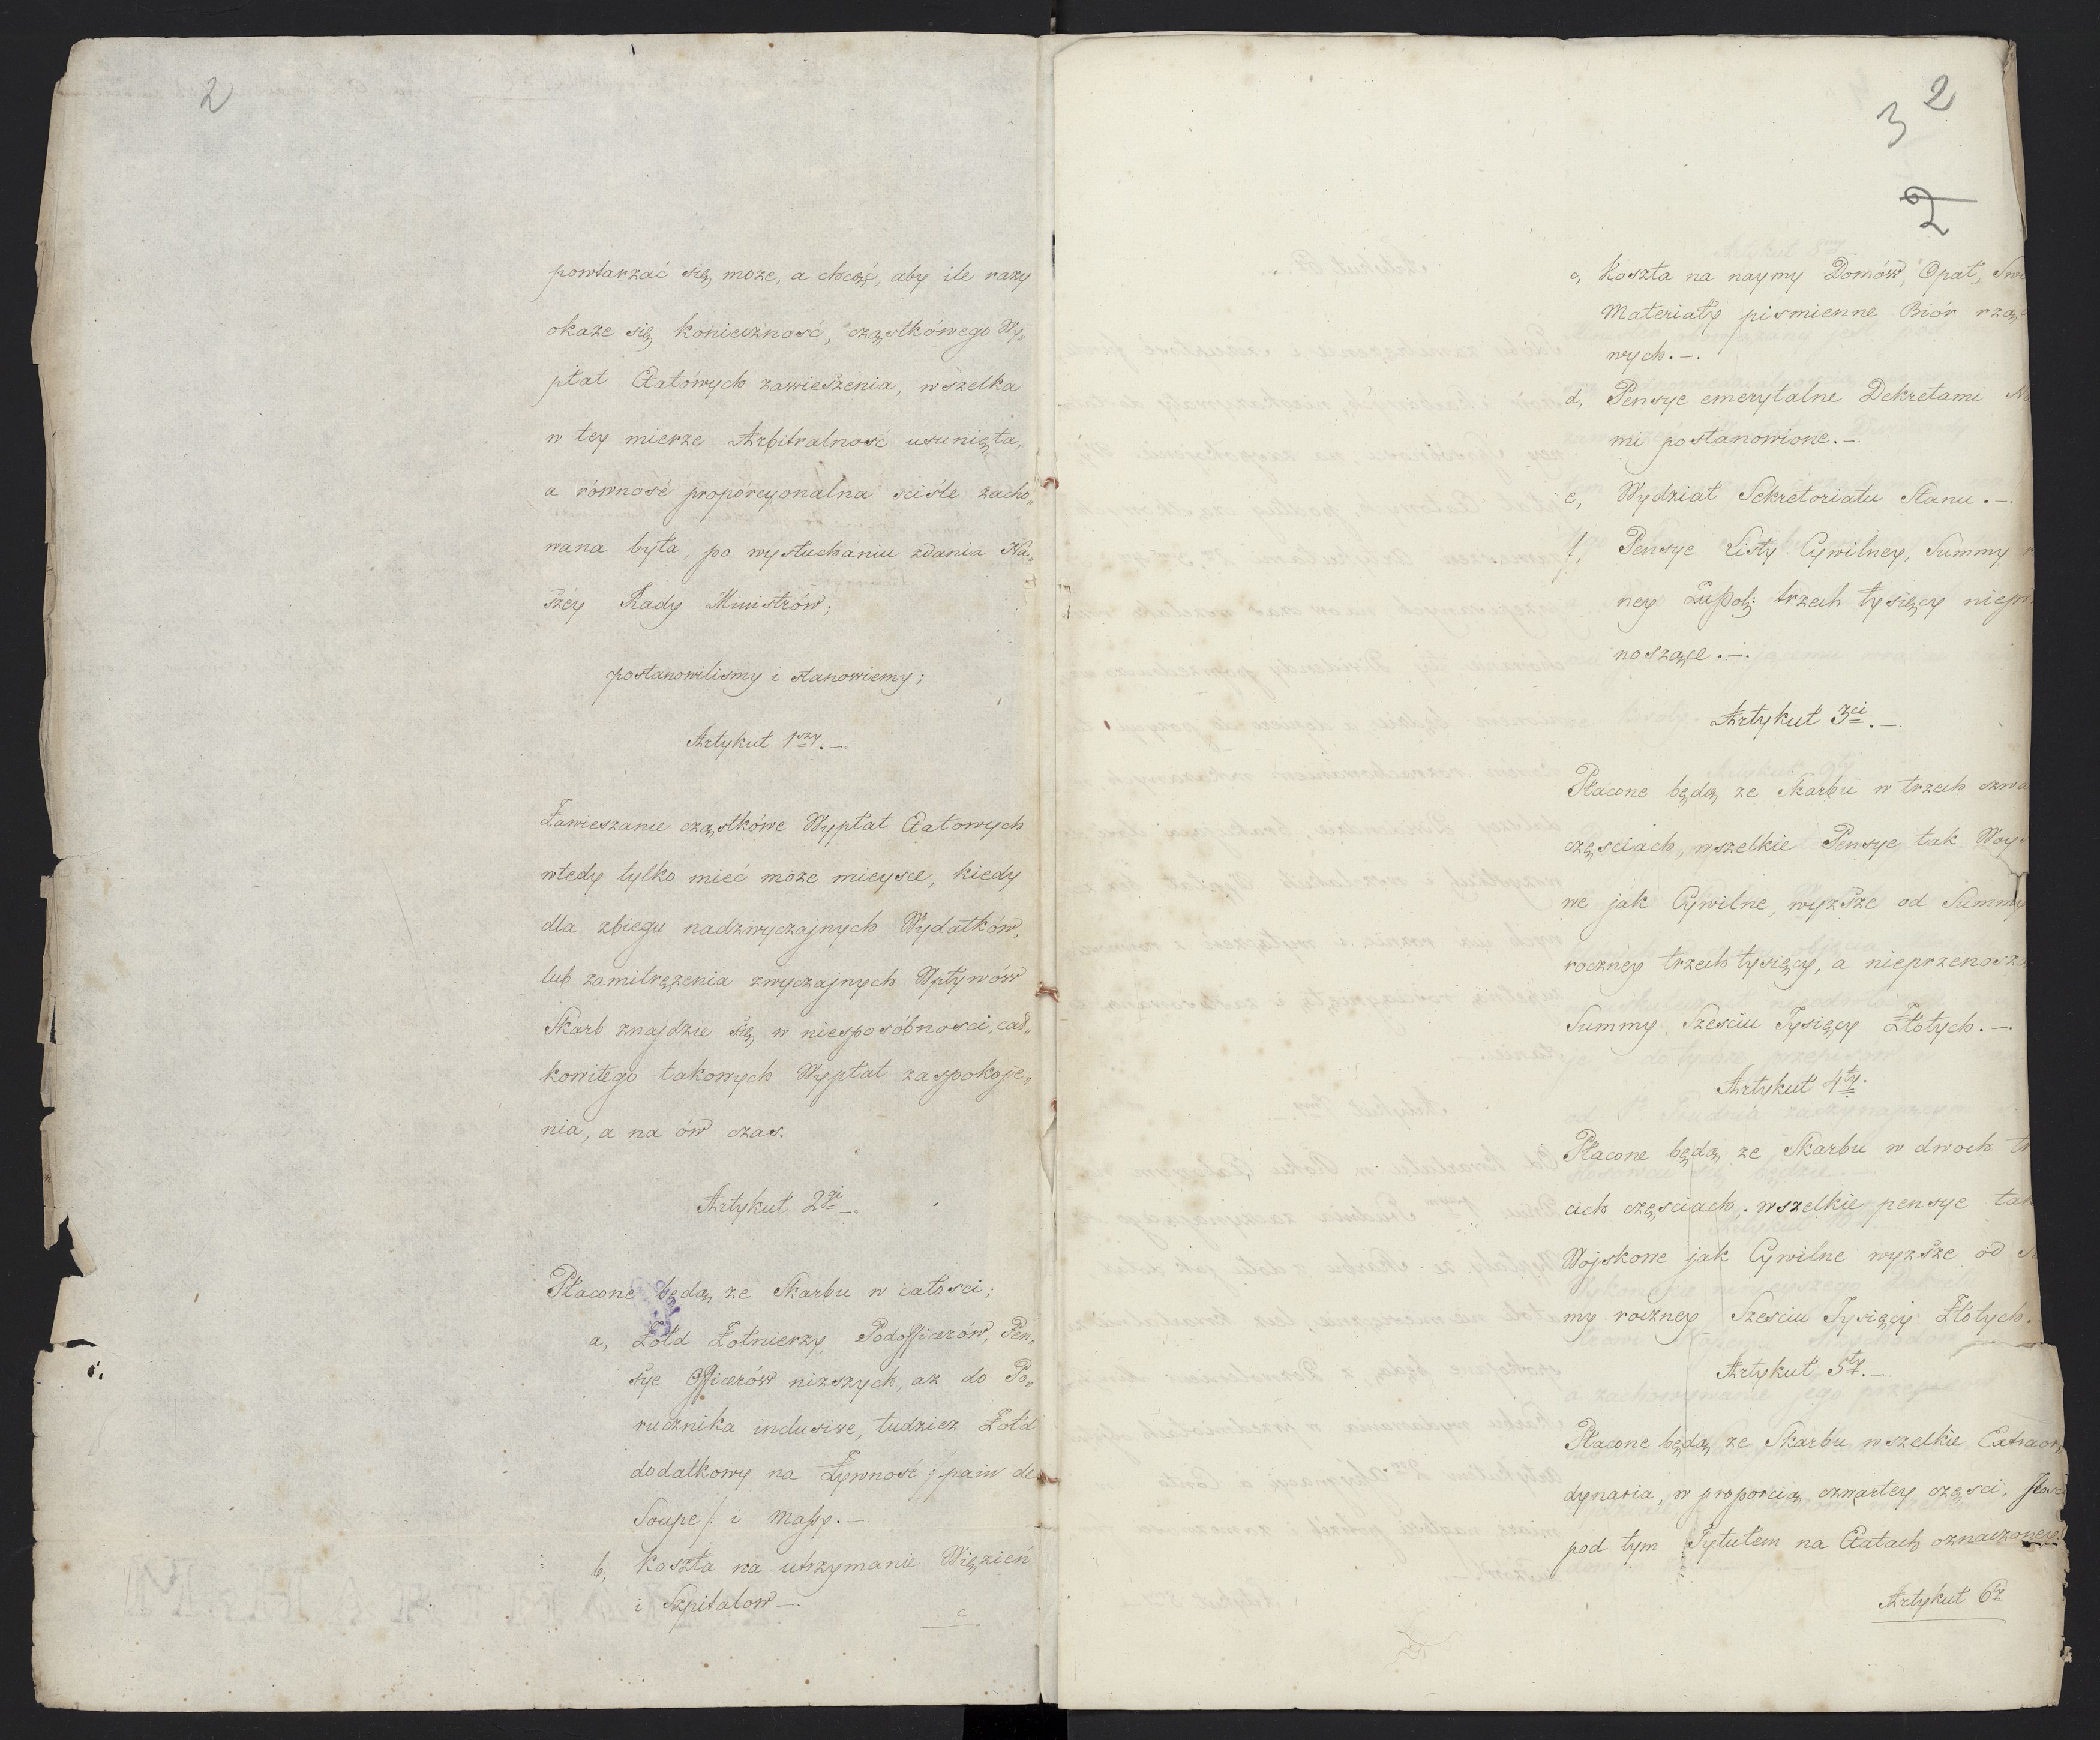 2
powtarzać się może, a chcąć, aby ile razy
okaże się konieczność, cząstkówego Wy„
płat Etatówych zawieszenia, wszelka
w tey mierze Arbitralność usunięta„
a równość proporcyonalna sciśle zacho„
wana była, po wysłuchaniu zdania Na„
széy Rady Ministrów;
postanowiliśmy i stanowiemy;
Artykuł 1szy.—.
Zawieszanie cząstkówe Wypłat Etatowych
wtedy tylko mieć może mieysce, kiedy
dla zbiegu nadzwyczajnych Wydatków,
lub zamitrężenia zwyczajnych Wpływów
Skarb znajdzie się w niesposóbności, cał„
kowitego takowych Wypłat zaspokoje„
nia, a na ów czas.
Artykuł 2gi—.
Płacone będą ze Skarbu w całości;
a, Żołd Żołnierzy, Podofficerów, Pen„
sye Officerów niższych, aż do Po„
rucznika inclusive, tudzież Żołd
dodatkowy na Żywność /:pain de
Soupe/: i Massy.—
b, Koszta na utrzymanie Więzień
i Szpitalow—.
c
2
3
2
c, Koszta na naymy Domów, Opał, Swi
Materiały pismienne Biór rzą
wych.—.
d, Pensye emerytalne Dekretami Na
mi postanowione.—.
e, Wydział Sekretoriatu Stanu.—.
f, Pensye Listy Cywilney, Summy r
ney Złłpol: trzech tysięcy niepr
noszące.—.
Artykuł 3ci.—.
Płacone będą ze Skarbu w trzech czwa
częściach, wszelkie Pensye tak Woys
we jak Cywilne, wyższe od Summy
roczney trzech tysięcy, a nieprzenoszą
Summy Sześciu Tysięcy Złotych.—.
Artykuł 4ty.
Płacone będą ze Skarbu w dwoch tr
cich częściach, wszelkie pensye tak
Wojskowe jak Cywilne wyższe od Su
my roczney Sześciu Tysięcy Złotych.
Artykuł 5ty.—
Płacone będą ze Skarbu wszelkie Extraor„
dynaria, w proporcią czwartey części, Ilości
pod tym Tytułem na Etatach oznaczoney.
Artykuł 6ty